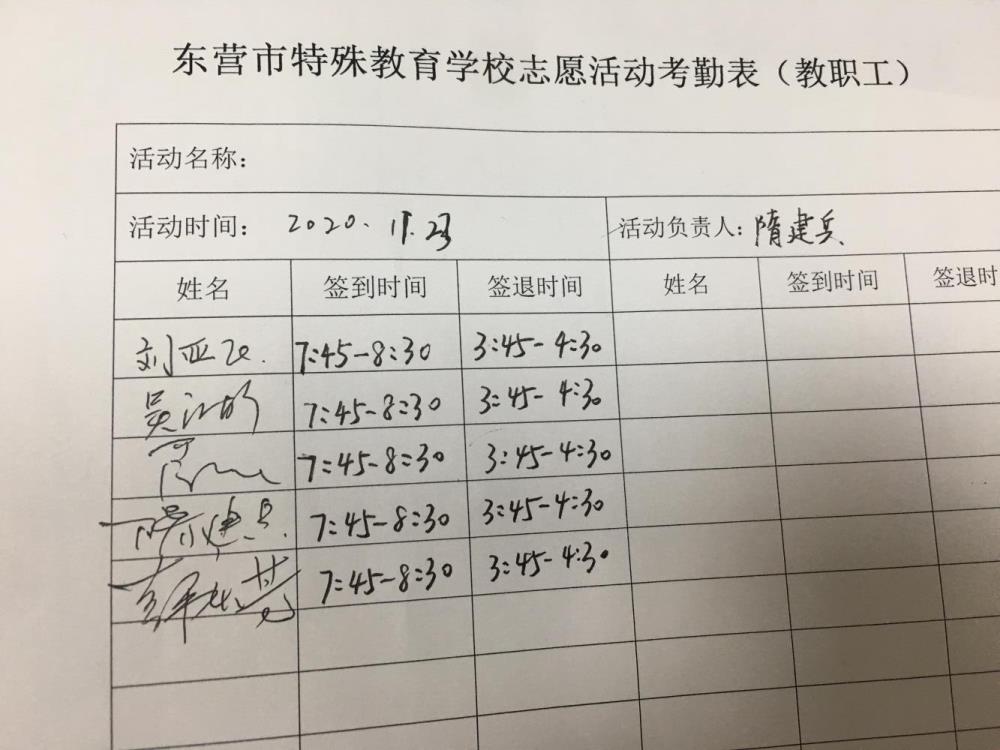 东营市特殊教育学校志愿活动考勤表（教职工）
活动名称：
活动时间： 2020.11.23 活动负责人：隋建兵
姓名 签到时间 签退时间 姓名 签到时间 签退时
刘亚 7:45-8:30 3:45-4:30
吴 7:45-8:30 3:45-4:30
7:45-8:30 3:45-4:30
隋建兵 7:45-8:30 3:45-4:30
7:45-8:30 3:45-4:30